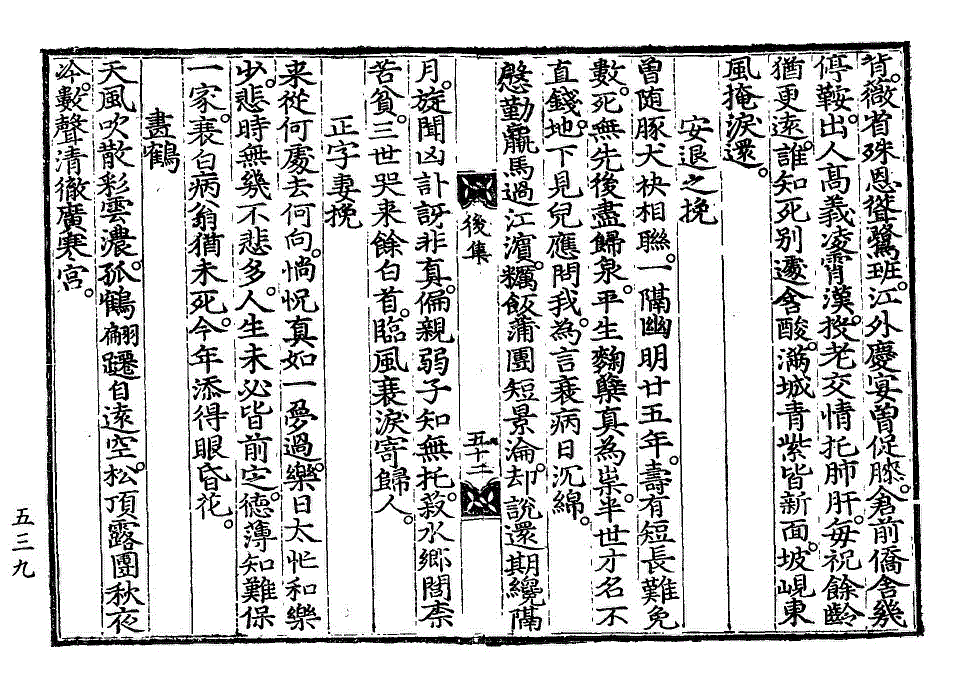 背。微省殊恩從鷺班。江外慶宴曾促膝。倉前僑舍幾
停鞍。出人高義凌霄漢。投老交情托肺肝。每祝餘齡
猶更遠。誰知死別遽含酸。滿城青紫皆新面。坡峴東
風掩淚還。
安退之挽
曾随豚犬袂相聯。一隔幽明廿五年。壽有短長難免
數。死無先後盡歸泉。平生麴糱真為祟。半世才名不
直錢。地下見兒應問我。為言衰病日沉綿。
慇勤羸馬過江濱。糲飯蒲團短景淪。却說還期纔隔
月。旋聞凶訃訝非真。偏親弱子知無托。菽水鄉閭柰
苦貧。三世哭来餘白首。臨風衰淚寄歸人。
正字妻挽
来從何處去何向。惝怳真如一夢過。樂日太忙和樂
少。悲時無幾不悲多。人生未必皆前定。德薄知難保
一家。衰白病翁猶未死。今年添得眼昏花。
畫鶴
天風吹散彩雲濃。孤鶴翩躚自遠空。松頂露團秋夜
冷。數聲清徹廣寒宮。
後集
五十二
五三九